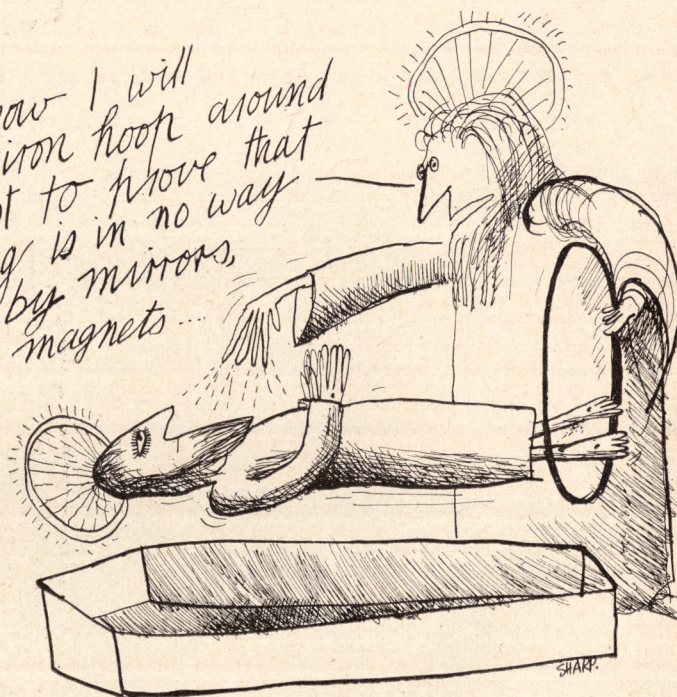 now I will
iron hoop around
to prove that
is in no way
by mirrors,
magnets...
SHARP.